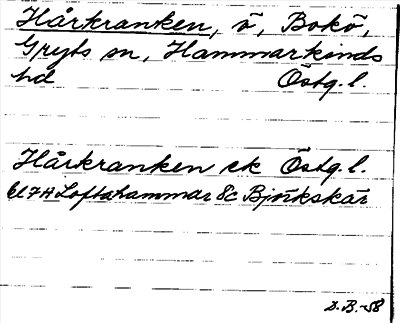 Hårkranken, ö, Bokö,
Gryts sn, Hammarkinds
hd Östg. l.
Hårkranken ek Östg. l.
6l7H Loftahammar 8c Björkskär
D.B.-58